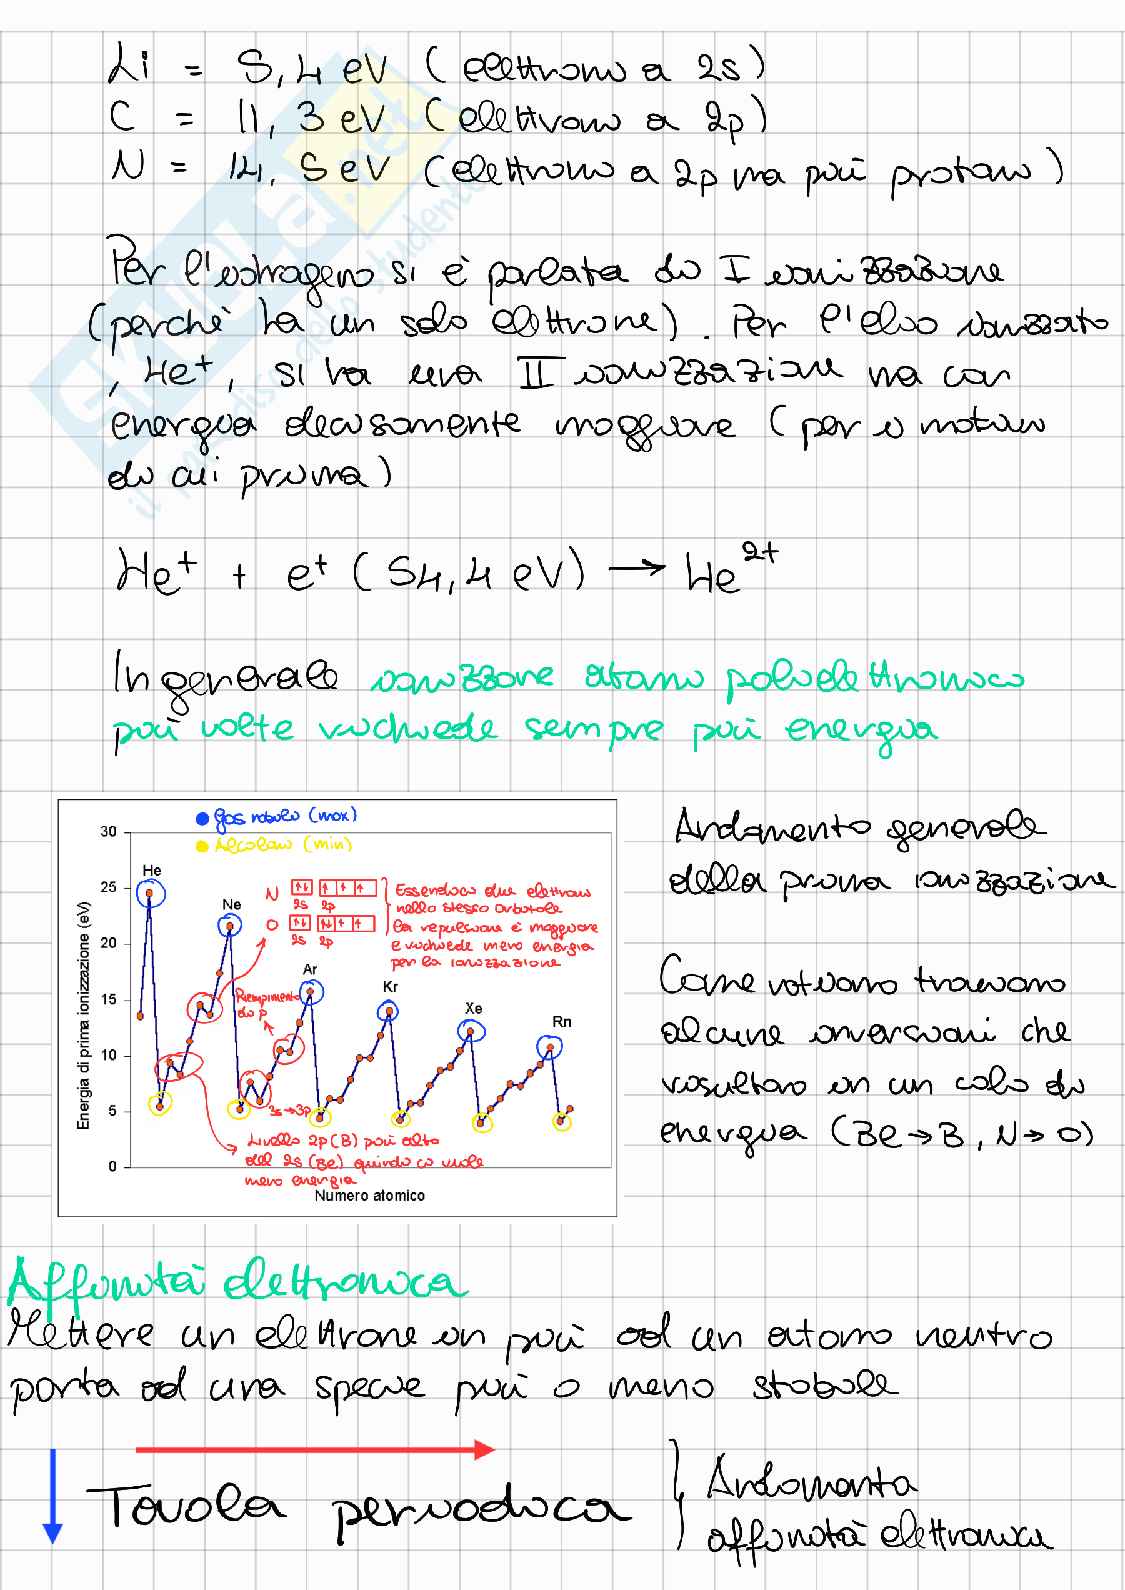 Li = 5,4 eV (elettrone a 2s)
C = 11,3 eV (elettrone a 2p)
N = 14,5 eV (elettrone a 2p ma più protoni)
Per l'idrogeno si è parlato di I ionizzazione
(perché ha un solo elettrone). Per l'elio ionizzato
, He⁺, si ha una II ionizzazione ma con
energia decisamente maggiore (per i motivi
di cui prima)
He⁺ + e⁺ (54,4 eV) → He²⁺
In generale ionizzare atomo polielettronico
più volte richiede sempre più energia
Gas nobili (max)
Alcalini (min)
Energia di prima ionizzazione (eV)
30
25
20
15
10
5
0
He
Ne
Ar
Kr
Xe
Rn
N
2s 2p
O
2s 2p
Essendoci due elettroni
nello stesso orbitale
la repulsione è maggiore
e richiede meno energia
per la ionizzazione
Riempimento
di p
3s→3p
Livello 2p (B) più alto
del 2s (Be) quindi ci vuole
meno energia
Numero atomico
Andamento generale
della prima ionizzazione
Come notiamo troviamo
alcune inversioni che
risultano in un calo di
energia (Be→B, N→O)
Affinità elettronica
Mettere un elettrone in più ad un atomo neutro
porta ad una specie più o meno stabile
Tavola periodica
Andamento
affinità elettronica
SKUOLA.net
il paradiso dello studente